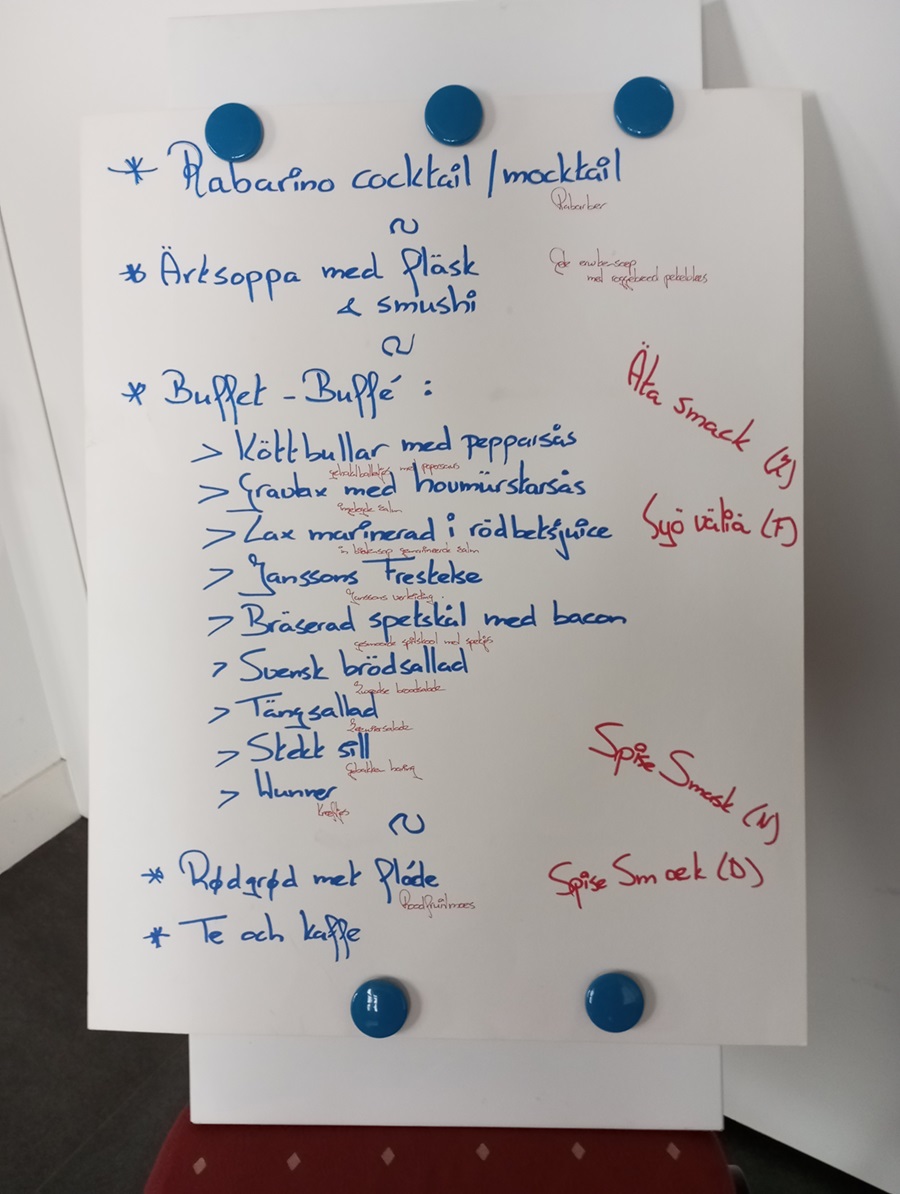 * Rabarino cocktail / mocktail
Rabarber
~
* Ärtsoppa med fläsk
& smushi
Gele erwtensoep
met roggebrood
~
* Buffet - Buffé :
> Köttbullar med pepparsås
gehaktballetjes met pepersaus
> Gravlax med hovmürstarsås
ingelegde zalm
> Lax marinerad i rödbetsjuice
in bietensap gemarineerde zalm
> Janssons Frestelse
Janssons verleiding
> Bräserad spetskål med bacon
gesmoorde spitskool met spekjes
> Svensk brödsallad
Zweedse broodsalade
> Tångsallad
Zeewiersalade
> Stekt sill
Gebakken haring
> Hunner
Kreeftjes
~
* Rødgrød met fløde
Roodfruitmoes
* Te och kaffe
Äta smack (Z)
Syö väliä (F)
Spise Smask (N)
Spise Smaek (D)